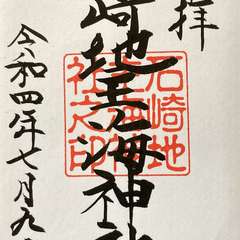 拝
崎地主海神社
石崎地
主海神
社之印
令和四年七月九